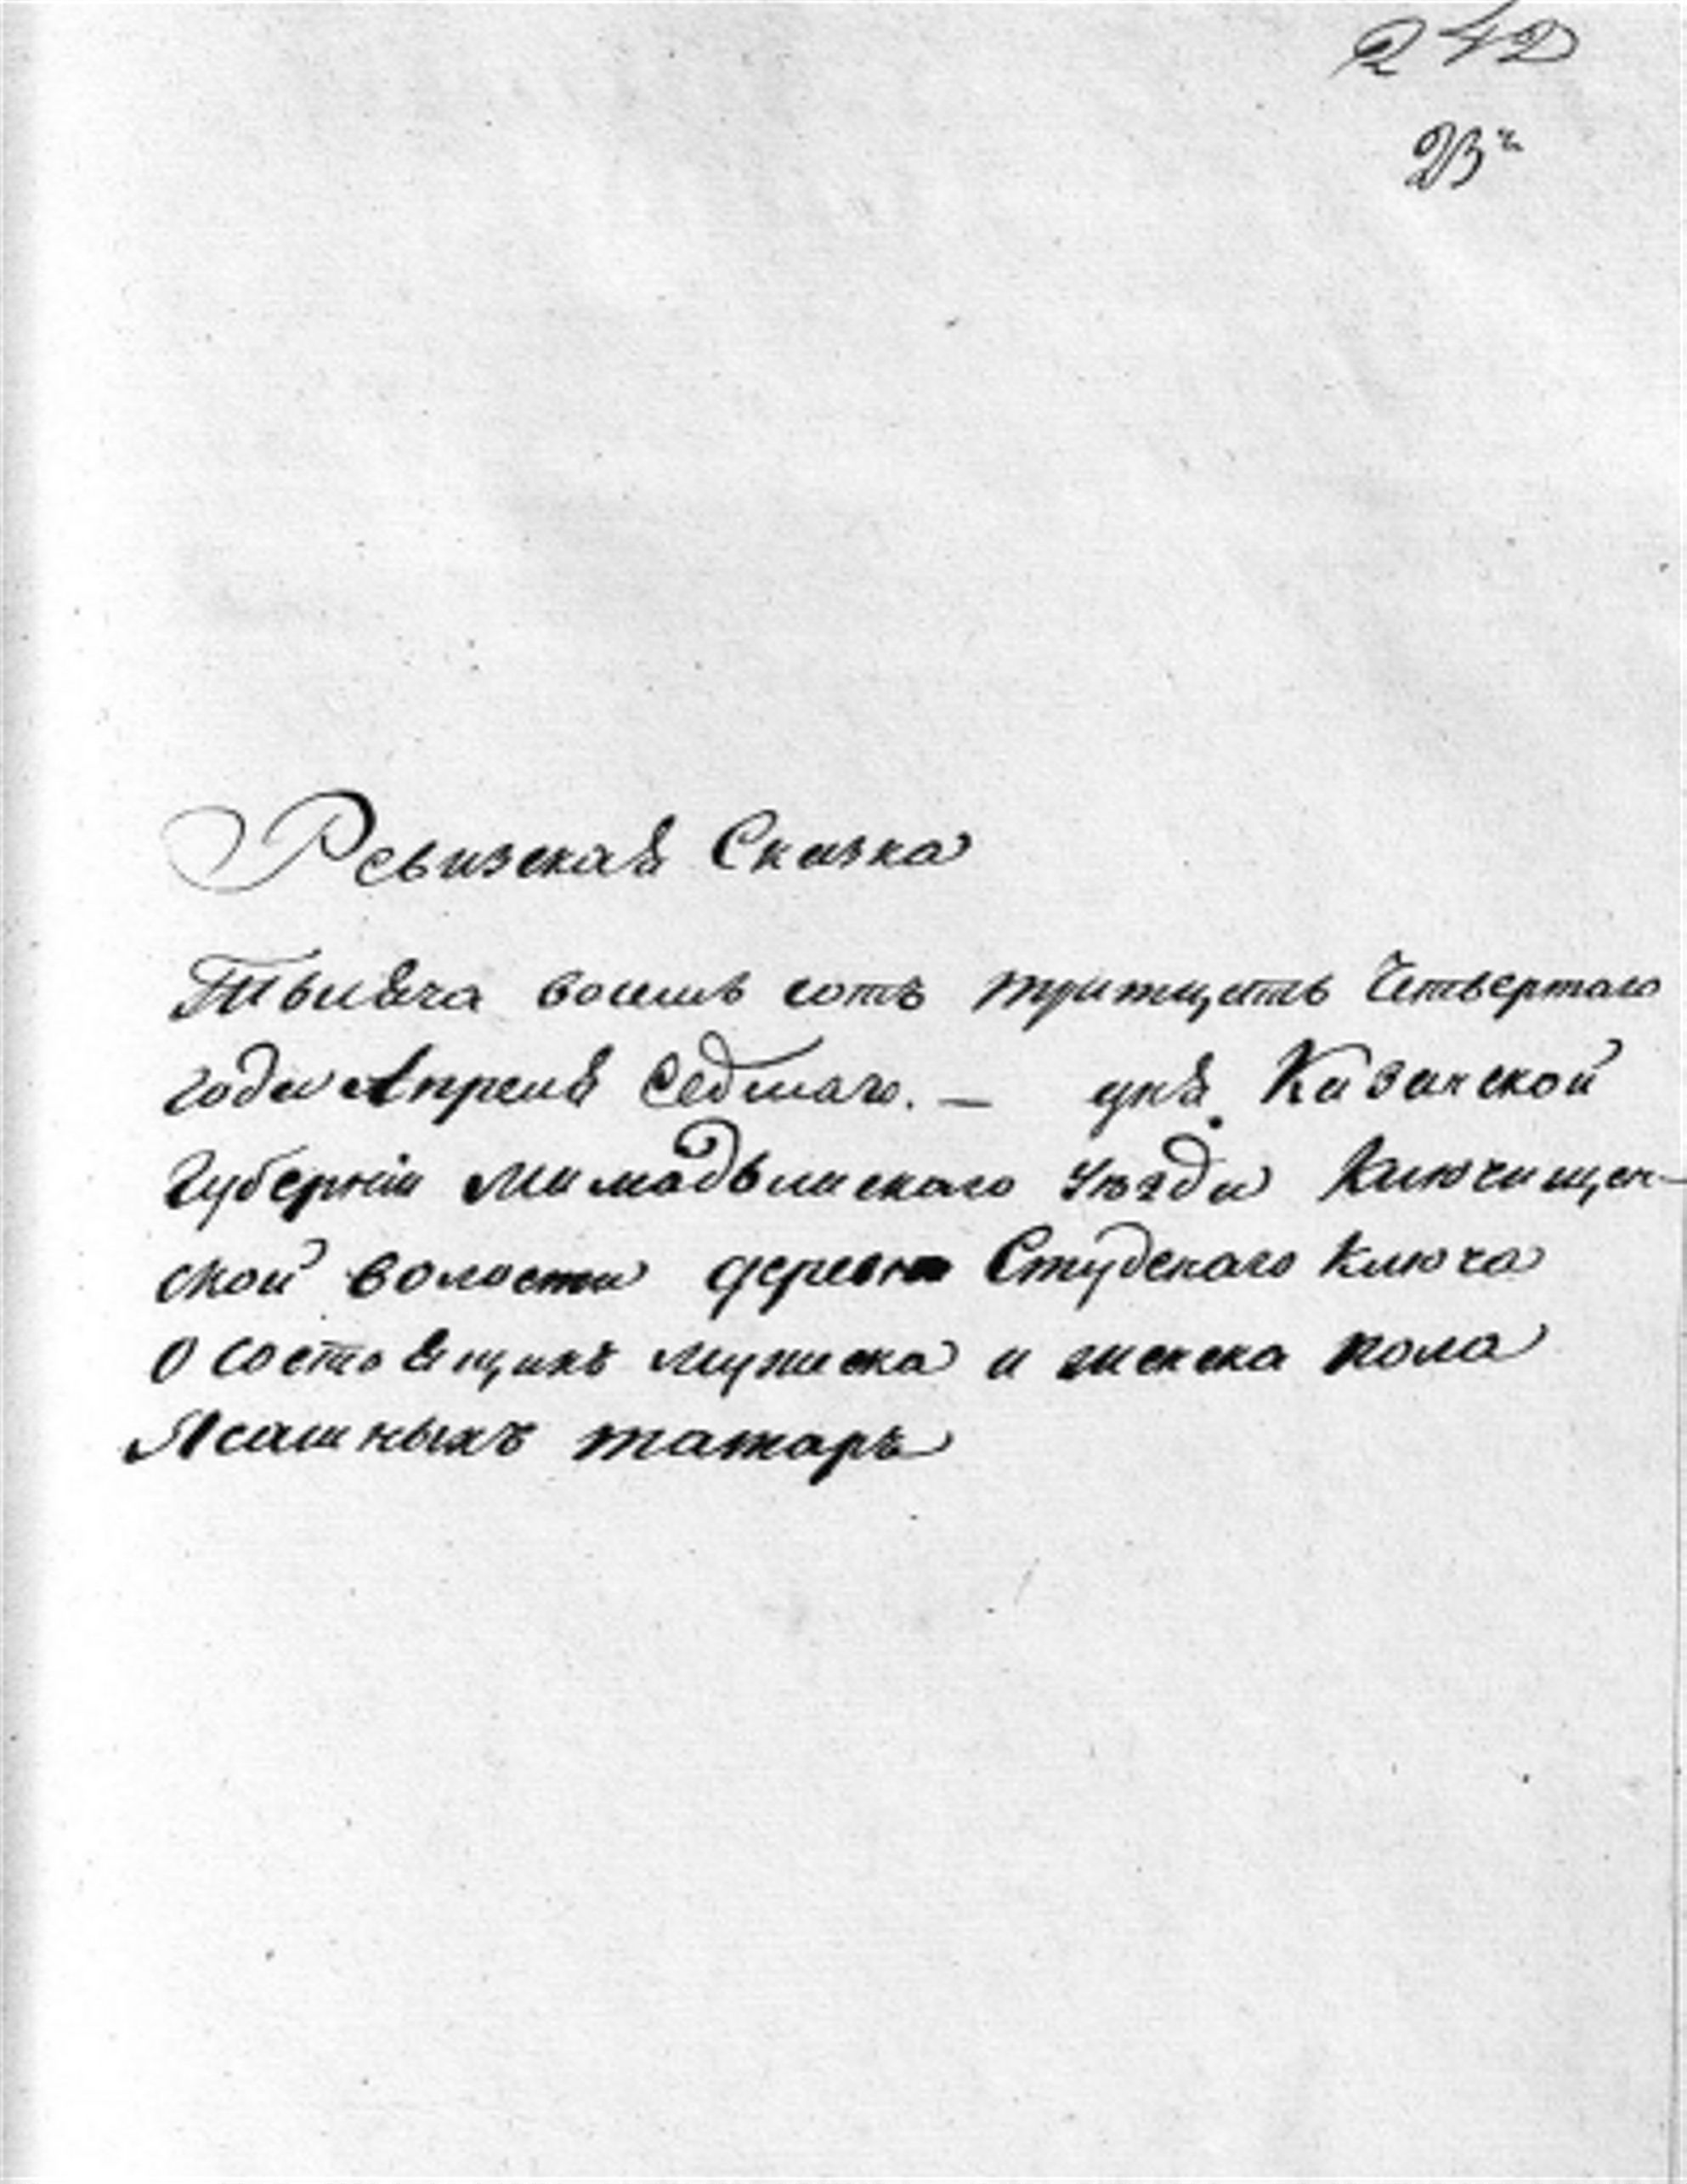 242
Ревизская Сказка
Тысяча восемь сотъ тритцеть Четвертаго
года Апреля Седмаго. — дня Казанской
Губерніи Мамадышскаго Уѣзда Ключищен-
ской волости деревни Студенаго Ключа
О состоящихъ мужеска и женска пола
Ясашныхъ татаръ